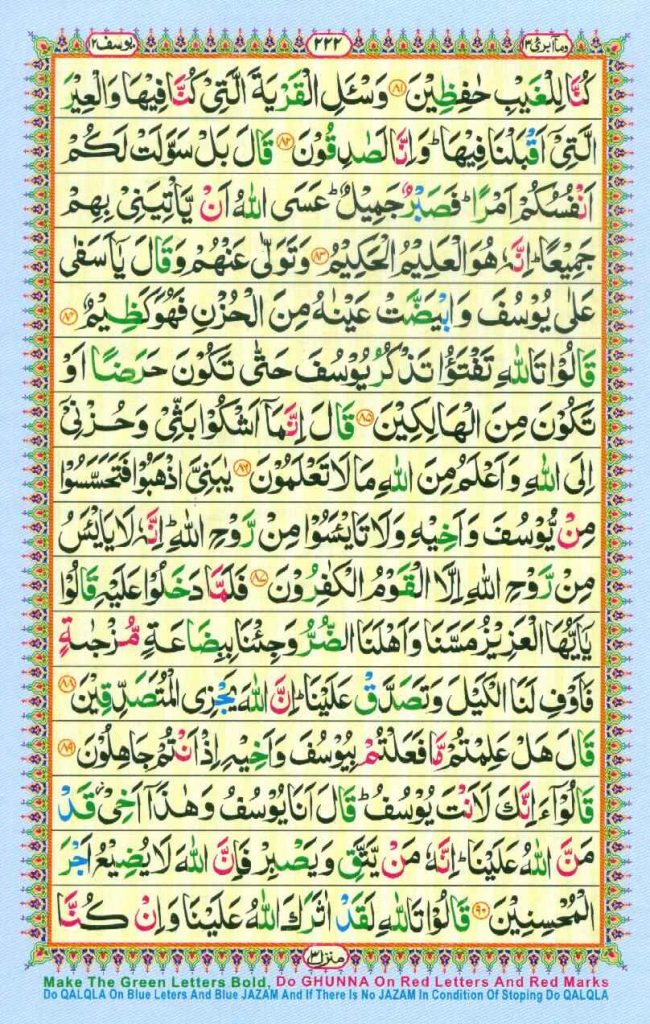 وما ابرئ ۱۳
۲۲۲
يوسف ۱۲
كُنَّا لِلْغَيْبِ حٰفِظِيْنَ ﴿۸۱﴾ وَسْـَٔلِ الْقَرْيَةَ الَّتِيْ كُنَّا فِيْهَا وَالْعِيْرَ
الَّتِيْٓ اَقْبَلْنَا فِيْهَا ؕ وَاِنَّا لَصٰدِقُوْنَ ﴿۸۲﴾ قَالَ بَلْ سَوَّلَتْ لَكُمْ
اَنْفُسُكُمْ اَمْرًا ؕ فَصَبْرٌ جَمِيْلٌ ؕ عَسَى اللّٰهُ اَنْ يَّاْتِيَنِيْ بِهِمْ
جَمِيْعًا ؕ اِنَّهٗ هُوَ الْعَلِيْمُ الْحَكِيْمُ ﴿۸۳﴾ وَتَوَلّٰى عَنْهُمْ وَقَالَ يٰٓاَسَفٰى
عَلٰى يُوْسُفَ وَابْيَضَّتْ عَيْنٰهُ مِنَ الْحُزْنِ فَهُوَ كَظِيْمٌ ﴿۸۴﴾
قَالُوْا تَاللّٰهِ تَفْتَؤُا تَذْكُرُ يُوْسُفَ حَتّٰى تَكُوْنَ حَرَضًا اَوْ
تَكُوْنَ مِنَ الْهَالِكِيْنَ ﴿۸۵﴾ قَالَ اِنَّمَآ اَشْكُوْا بَثِّيْ وَحُزْنِيْٓ
اِلَى اللّٰهِ وَاَعْلَمُ مِنَ اللّٰهِ مَا لَا تَعْلَمُوْنَ ﴿۸۶﴾ يٰبَنِيَّ اذْهَبُوْا فَتَحَسَّسُوْا
مِنْ يُّوْسُفَ وَاَخِيْهِ وَلَا تَايْـَٔسُوْا مِنْ رَّوْحِ اللّٰهِ ؕ اِنَّهٗ لَا يَايْـَٔسُ
مِنْ رَّوْحِ اللّٰهِ اِلَّا الْقَوْمُ الْكٰفِرُوْنَ ﴿۸۷﴾ فَلَمَّا دَخَلُوْا عَلَيْهِ قَالُوْا
يٰٓاَيُّهَا الْعَزِيْزُ مَسَّنَا وَاَهْلَنَا الضُّرُّ وَجِئْنَا بِبِضَاعَةٍ مُّزْجٰىةٍ
فَاَوْفِ لَنَا الْكَيْلَ وَتَصَدَّقْ عَلَيْنَا ؕ اِنَّ اللّٰهَ يَجْزِى الْمُتَصَدِّقِيْنَ ﴿۸۸﴾
قَالَ هَلْ عَلِمْتُمْ مَّا فَعَلْتُمْ بِيُوْسُفَ وَاَخِيْهِ اِذْ اَنْتُمْ جَاهِلُوْنَ ﴿۸۹﴾
قَالُوْٓا ءَاِنَّكَ لَاَنْتَ يُوْسُفُ ؕ قَالَ اَنَا يُوْسُفُ وَهٰذَآ اَخِيْ ؗ قَدْ
مَنَّ اللّٰهُ عَلَيْنَا ؕ اِنَّهٗ مَنْ يَّتَّقِ وَيَصْبِرْ فَاِنَّ اللّٰهَ لَا يُضِيْعُ اَجْرَ
الْمُحْسِنِيْنَ ﴿۹۰﴾ قَالُوْا تَاللّٰهِ لَقَدْ اٰثَرَكَ اللّٰهُ عَلَيْنَا وَاِنْ كُنَّا
منزل ۳
Make The Green Letters Bold, Do GHUNNA On Red Letters And Red Marks
Do QALQLA On Blue Leters And Blue JAZAM And If There Is No JAZAM In Condition Of Stoping Do QALQLA